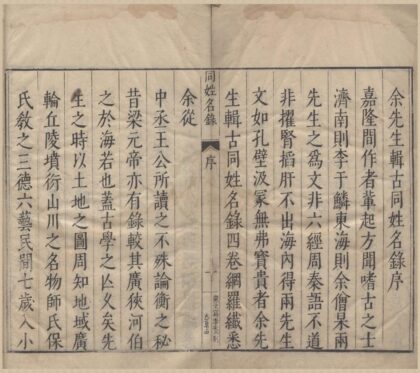 余先生輯古同姓名錄序
嘉隆間作者輩起方聞嗜古之士
濟南則李于鱗東海則余僧杲兩
先生之為文非六經周秦語不道
非擢腎搯肝不出海內得兩先生
文如孔壁汲冢無弗寶貴者余先
生輯古同姓名錄四卷網羅纖悉
同姓名錄 序 一
余從
中丞王公所讀之不殊論衡之秘
昔梁元帝亦有錄較其廣徙河伯
之於海若也蓋古學之亾久矣先
生之時以土地之圖周知地域廣
輪丘陵墳衍山川之名物師氏保
氏敎之三德六藝民間七歲入小